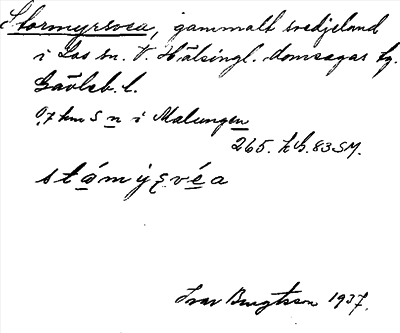 Stormyrsvea, gammalt svedjeland
i Los sn. V. Hälsingl. domsagas tg.
Gävleb. l.
0,7 km S n i Malungen
265. h G. 83 SM.
stómyṣvéa
Ivar Bengtsson 1937.